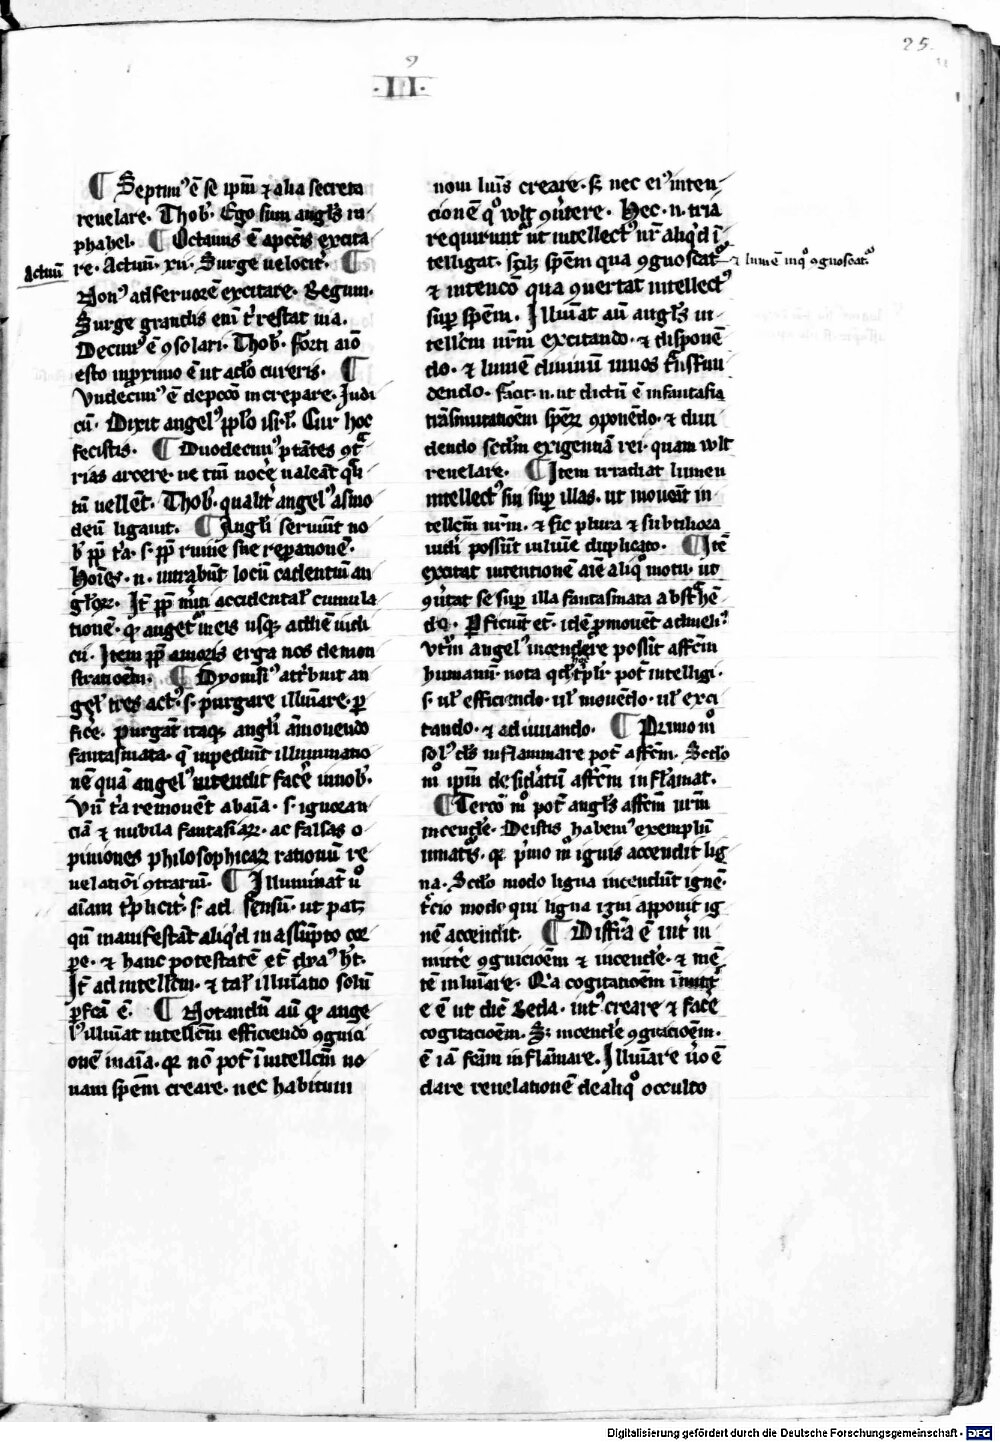 25
·II·
¶ Septimꝰ ē se ipm̄ ⁊ alia secreta
reuelare. Thob'. Ego sum angl's ra
phahel. ¶ Octauus ē apoc̄is excita
re. Actuū. xii. Surge uelocit'. ¶
Actuū
Nonꝰ ad feruorē excitare. Regum.
Surge grandis eni t' restat uia.
Decimꝰ ē ꝯsolari. Thob'. Forti aīo
esto inproximo ē ut a deo cureris. ¶
Vndecimꝰ ē de pcc̄o increpare. Judi
cū. Dixit angelꝰ pp̄lo isrl'. Cur hoc
fecistis. ¶ Duodecimꝰ ptātes ꝯt̄
rias arcere. ne tm̄ nocē ualeāt q̄
tū uellēt. Thob'. qualit' angelꝰ asmo
deū ligauit. ¶ Angl'i seruiūt no
b' pp̄ t'a. s. pp̄ ruine sue repationē.
Hoīes. n. intrabūt locū cadentiū an
gl'oꝝ. It̄ pp̄ m'iti accidental' cumula
tionē. q̄ auget' in eis usq̄ ad diē iudi
cii. Item pp̄ amoris erga nos demon
stratioēm. ¶ Dyonisiꝰ attribuit an
gel' tres actꝰ. s. purgare illuīare. ꝑ
fice. Purgāt itaq̄ angl'i āmouendo
fantasmata. q̄ inpediūt illuminatio
nē quā angelꝰ intendit facē in nob'.
Vn̄ t'a remouēt ab aīa. s. ignoran
ciā ⁊ nubila fantasiaꝝ. ac falsas o
piniones philosophicaꝝ rationū re
uelatiōi ꝯtrariū. ¶ Illumināt u°
aīam t'plicit'. s. ad sensū. ut patꝫ
qn̄ manifestāt aliq'd in assūpto cor
pe. ⁊ hanc potestatē et dyaꝰ h't.
It̄ ad intellc̄m. ⁊ tal' illuīatio solū
ꝑfc̄a ē. ¶ Notandū aū q̄ ange
lꝰ illuīat intellc̄m efficiendo ꝯgnici
onē in aīa. q̄ nō pot̄ ī intellc̄m no
uam spēm creare. nec habitum
noui luīs creare. s' nec eiꝰ inten
cionē q° wlt ꝯuertere. Hec. n. tria
requirunt' ut intellectꝰ nr̄ aliq'd ī
telligat. scilꝫ spēm qua ꝯgnoscat'
⁊ lumē in q° ꝯgnoscat'.
⁊ intencōē qua ꝯuertat intellectꝰ
sup̄ spēm. Illuīat aū angl's in
tellc̄m nr̄m excitando. ⁊ disponē
do. ⁊ lumē diuinū in nos t̄nsfun
dendo. facit. n. ut dictū ē in fantasia
trāsmutatioēm spēꝝ ꝯponēdo. ⁊ diui
dendo scd̄m exigentiā rei. quam wlt
reuelare. ¶ Item irradiat lumen
intellectꝰ sui sup̄ illas. ut mouēt in
tellc̄m nr̄m. ⁊ sic plura ⁊ subtiliora
uidi possūt in luīe duplicato. ¶ Itē
excitat intentionē aīe aliq° motu. ut
ꝯu'tat se sup̄ illa fantasmata abst̄hē
do. ꝑficiūt et. idē ꝓmouēt ad meliꝰ
Vtr̄m angelꝰ incendere possit affc̄m
humanū. nota qd̄ t'pli'. pot̄ intelligi.
s. ul' efficiendo. ul' mouēdo. ul' exci
tando. ⁊ adiuuando. ¶ Primo m°
solꝰ ds̄ inflammare pot̄ affc̄m. Secdo
m° ipm̄ desid'atū affc̄m inflāmat.
¶ Terco m° pot̄ angl's affc̄m nr̄m
incende'. De istis habemꝰ exemplū
in natis. q̄ p'mo m° ignis accendit lig
na. Secdo modo ligna incendūt ignē.
t'cio modo qui ligna igni apponit ig
nē accendit. ¶ Diffr̄a ē int' in
mitte' ꝯgnicioēm ⁊ incende'. ⁊ mē
tē inluīare. Q'a cogitatioēm īmitt'
e ē ut dic̄ Beda. int' creare ⁊ facē
cogitacioēm. Sꝫ incende' ꝯgnicioēm.
ē iā fc̄m inflāmare. Illuīare u'o ē
dare reuelationē de aliq° occulto
Digitalisierung gefördert durch die Deutsche Forschungsgemeinschaft - DFG